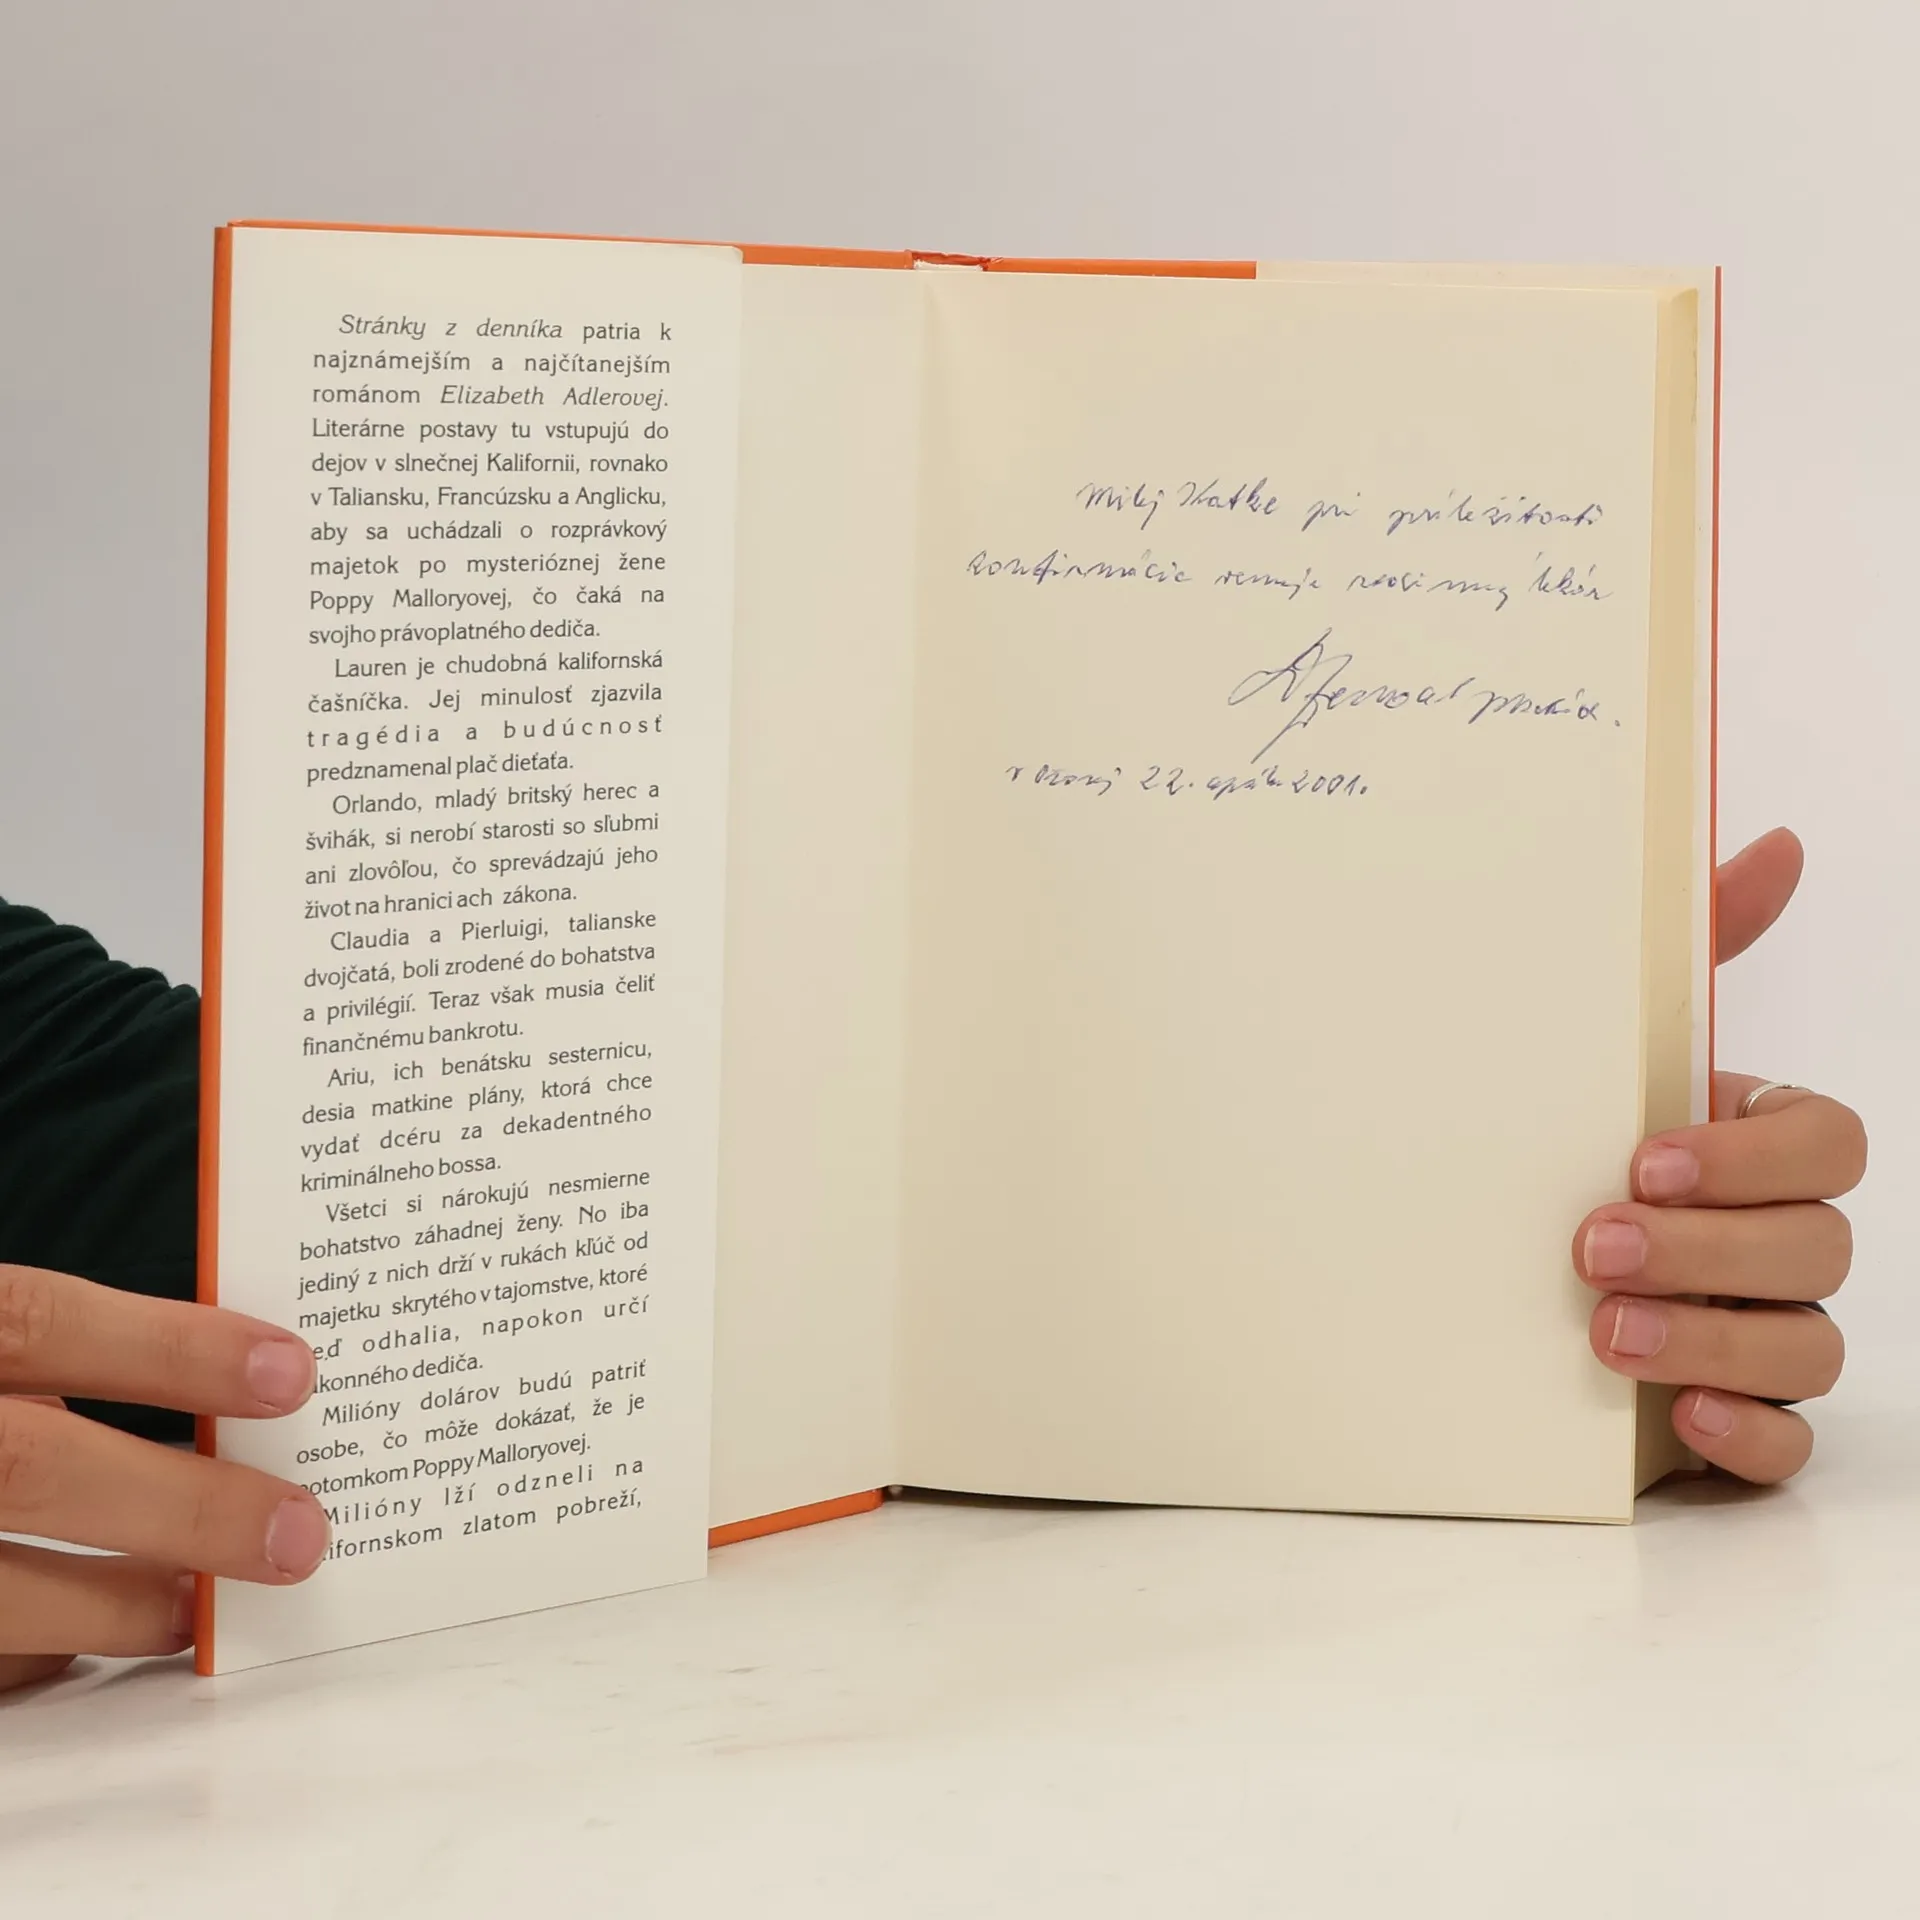 Stránky z denníka patria k
najznámejším a najčítanejším
románom Elizabeth Adlerovej.
Literárne postavy tu vstupujú do
dejov v slnečnej Kalifornii, rovnako
v Taliansku, Francúzsku a Anglicku,
aby sa uchádzali o rozprávkový
majetok po mysterióznej žene
Poppy Malloryovej, čo čaká na
svojho právoplatného dediča.
Lauren je chudobná kalifornská
čašníčka. Jej minulosť zjazvila
tragédia a budúcnosť
predznamenal plač dieťaťa.
Orlando, mladý britský herec a
švihák, si nerobí starosti so sľubmi
ani zlovôľou, čo sprevádzajú jeho
život na hranici ach zákona.
Claudia a Pierluigi, talianske
dvojčatá, boli zrodené do bohatstva
a privilégií. Teraz však musia čeliť
finančnému bankrotu.
Ariu, ich benátsku sesternicu,
desia matkine plány, ktorá chce
vydať dcéru za dekadentného
kriminálneho bossa.
Všetci si nárokujú nesmierne
bohatstvo záhadnej ženy. No iba
jediný z nich drží v rukách kľúč od
majetku skrytého v tajomstve, ktoré
odhalia, napokon určí
dediča.
Milióny dolárov budú patriť
osobe, čo môže dokázať, že je
potomkom Poppy Malloryovej.
Milióny lží odzneli na
zlatom pobreží,
Milej Katke pri príležitosti
konfirmácie venuje lekár
22. apríla 2001.